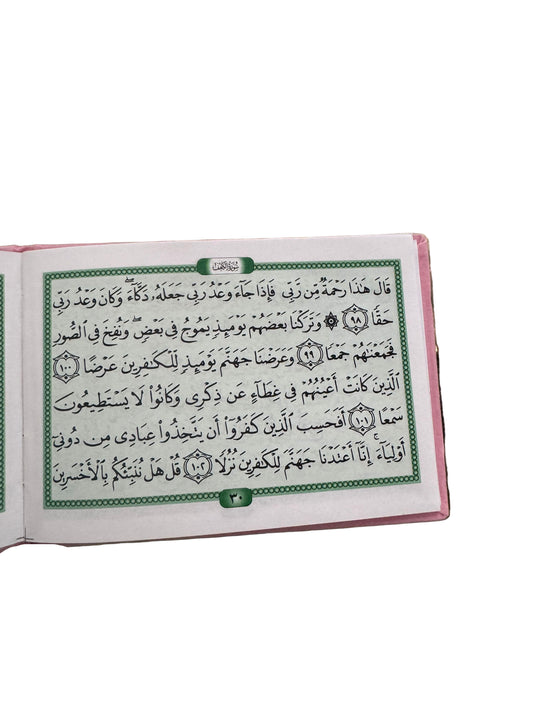 سُورَةُ الكَهْفِ
قَالَ هَٰذَا رَحْمَةٌ مِّن رَّبِّي فَإِذَا جَآءَ وَعْدُ رَبِّي جَعَلَهُۥ دَكَّآءَ ۖ وَكَانَ وَعْدُ رَبِّي
حَقًّا ٩٨ ۞ وَتَرَكْنَا بَعْضَهُمْ يَوْمَئِذٍ يَمُوجُ فِي بَعْضٍ ۖ وَنُفِخَ فِي ٱلصُّورِ
فَجَمَعْنَٰهُمْ جَمْعًا ٩٩ وَعَرَضْنَا جَهَنَّمَ يَوْمَئِذٍ لِّلْكَٰفِرِينَ عَرْضًا ١٠٠
ٱلَّذِينَ كَانَتْ أَعْيُنُهُمْ فِي غِطَآءٍ عَن ذِكْرِي وَكَانُوا۟ لَا يَسْتَطِيعُونَ
سَمْعًا ١٠١ أَفَحَسِبَ ٱلَّذِينَ كَفَرُوٓا۟ أَن يَتَّخِذُوا۟ عِبَادِي مِن دُونِيٓ
أَوْلِيَآءَ ۚ إِنَّآ أَعْتَدْنَا جَهَنَّمَ لِلْكَٰفِرِينَ نُزُلًا ١٠٢ قُلْ هَلْ نُنَبِّئُكُم بِٱلْأَخْسَرِينَ
٣٠